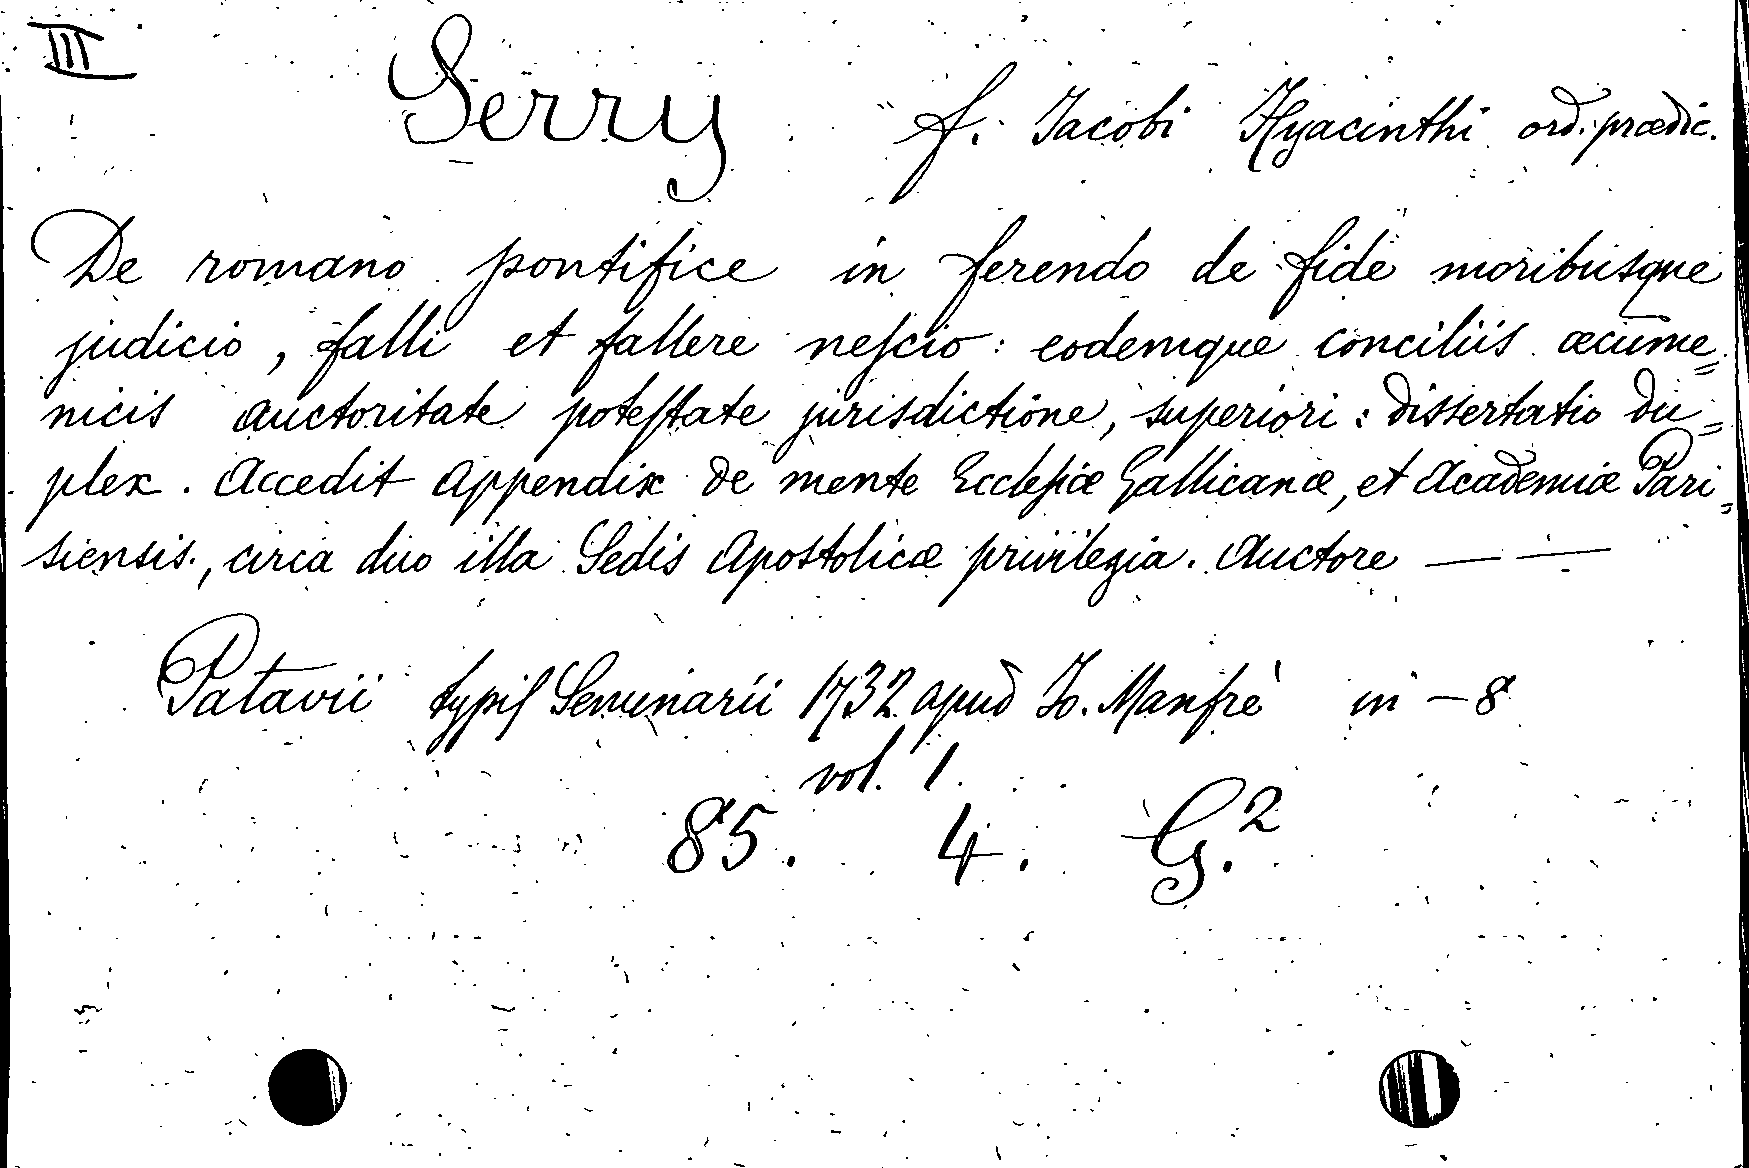 III
Serry f. Jacobi Hyacinthi ord. prædic.
De romano pontifice in ferendo de fide moribusque
judicio, falli et fallere neſcio: eodemque conciliis œcume=
nicis auctoritate poteſtate jurisdictione, superiori: dissertatio du=
plex. Accedit Appendix de mente Eccleſiæ Gallicanæ, et Academiæ Pari=
siensis., circa duo illa Sedis Apostolicæ privilegia. Auctore — —
Patavii typiſ Seminarii 1732 apud Jo. Manfrè in - 8
vol. 1.
85. 4. G.²